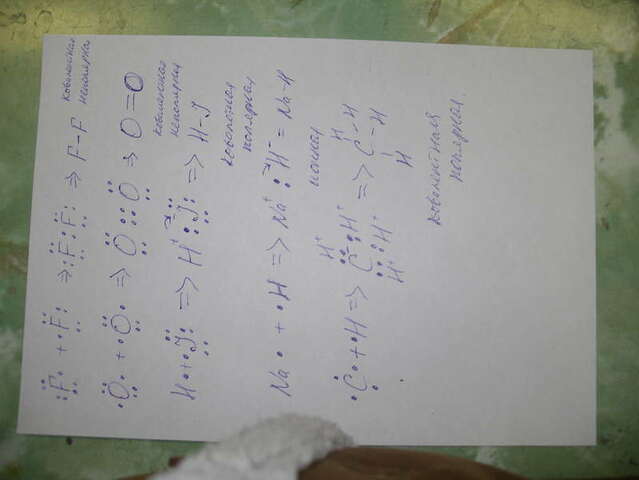 :F· + ·F: => :F:F: => F–F ковалентная
неполярна
·O· + ·O· => O::O => O=O
ковалентная
неполярная
H· + ·J: => H⁺:J: => H–J
ковалентная
полярная
Na· + ·H => Na⁺:H⁻ = Na–H
ионная
·C· + ·H => H⁺ :C:H⁺ :H⁺ H⁺ => H C–H –H H
ковалентная
полярная.